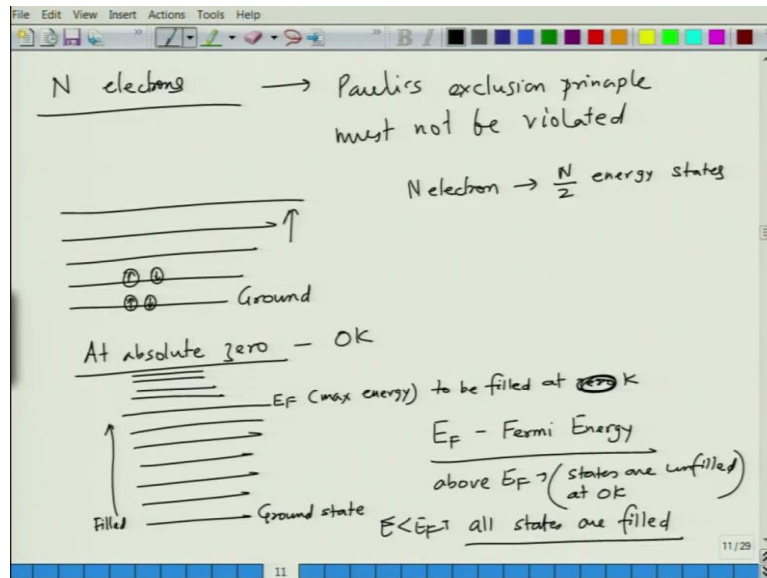 File Edit View Insert Actions Tools Help
N electrons → Pauli's exclusion principle
must not be violated
N electron → N/2 energy states
Ground
At absolute zero - 0K
EF (max energy) to be filled at zero K
EF - Fermi Energy
above EF → (states are unfilled)
at 0K
Filled
Ground state
E<EF → all states are filled
11/29
11